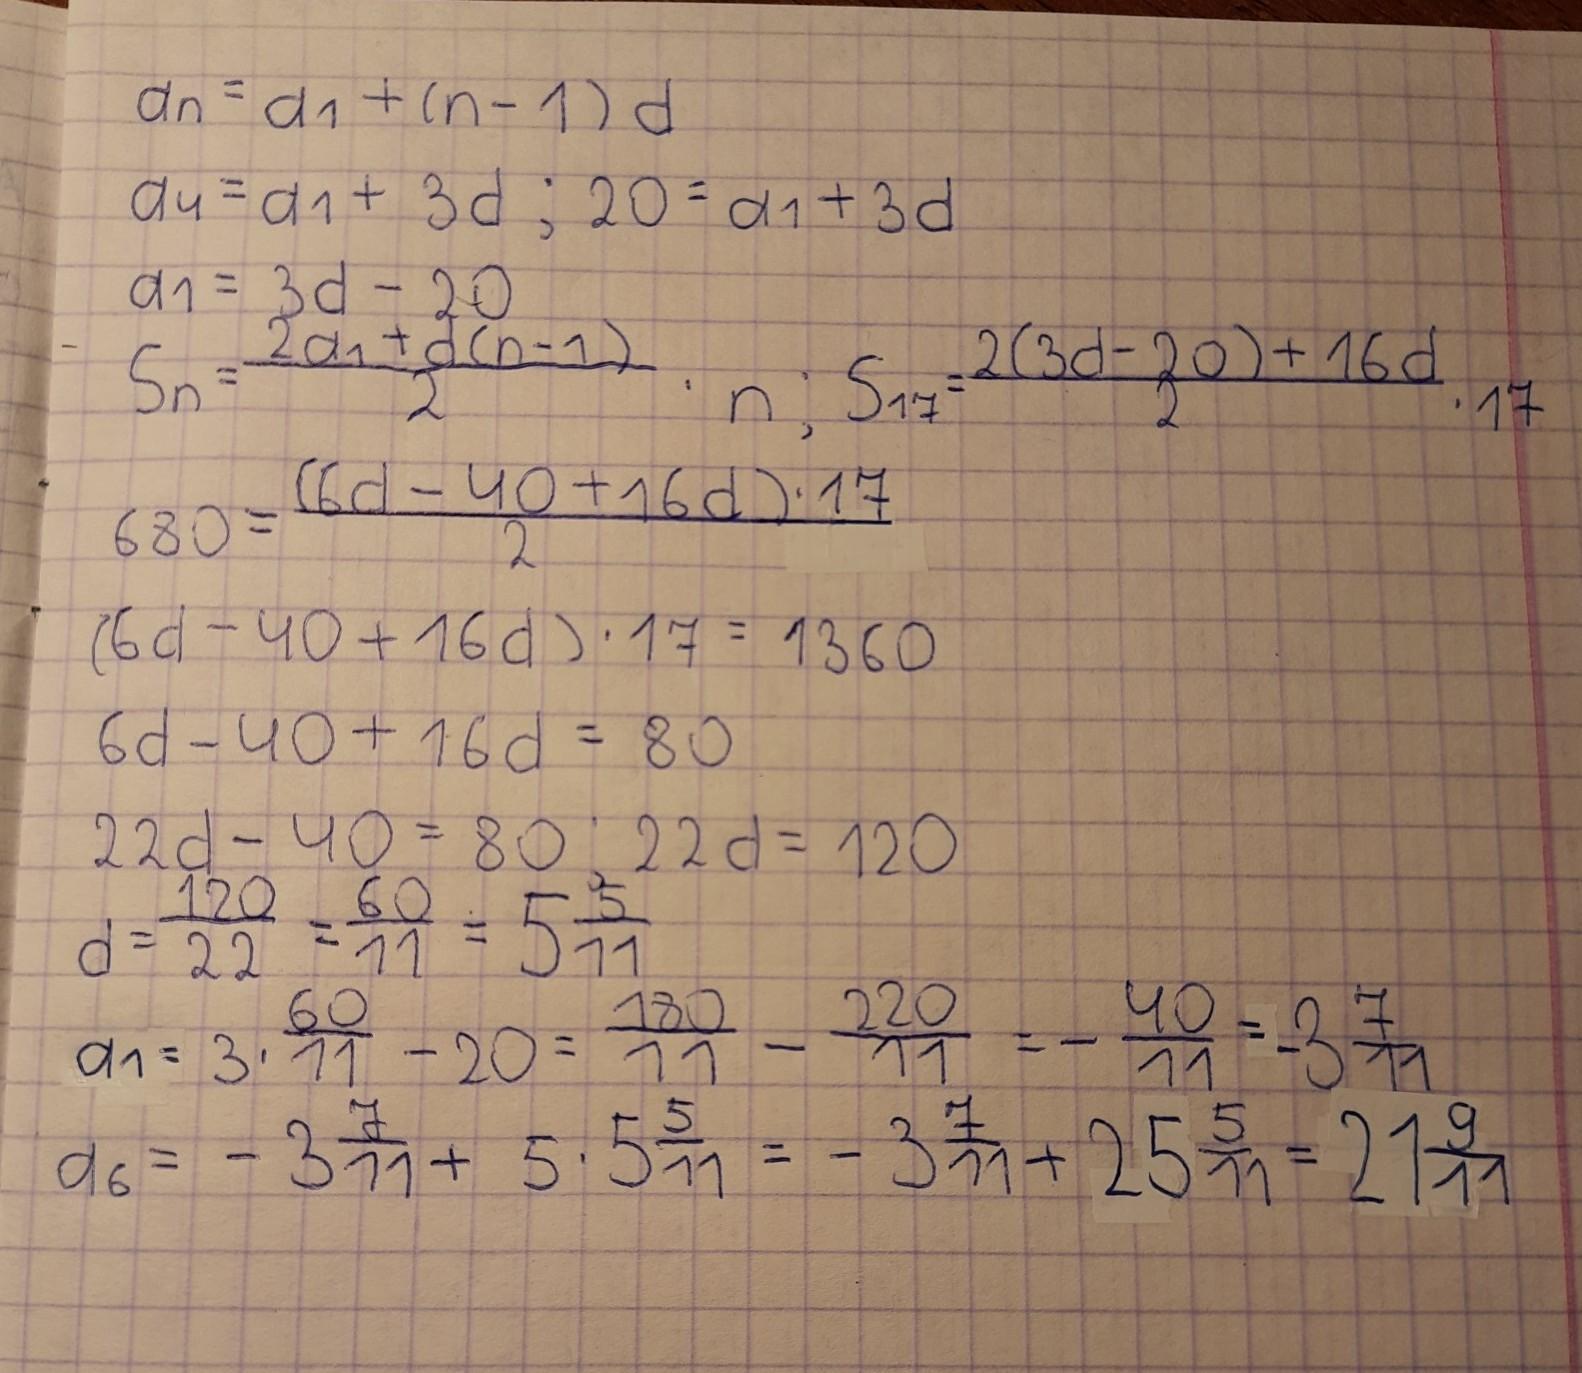 an = a1 + (n - 1) d
a4 = a1 + 3d ; 20 = a1 + 3d
a1 = 3d - 20
Sn = (2a1 + d(n-1))/2 · n ; S17 = (2(3d-20) + 16d)/2 · 17
680 = ((6d - 40 + 16d) · 17)/2
(6d - 40 + 16d) · 17 = 1360
6d - 40 + 16d = 80
22d - 40 = 80 ; 22d = 120
d = 120/22 = 60/11 = 5 5/11
a1 = 3 · 60/11 - 20 = 180/11 - 220/11 = - 40/11 = -3 7/11
a6 = - 3 7/11 + 5 · 5 5/11 = - 3 7/11 + 25 5/11 = 21 9/11